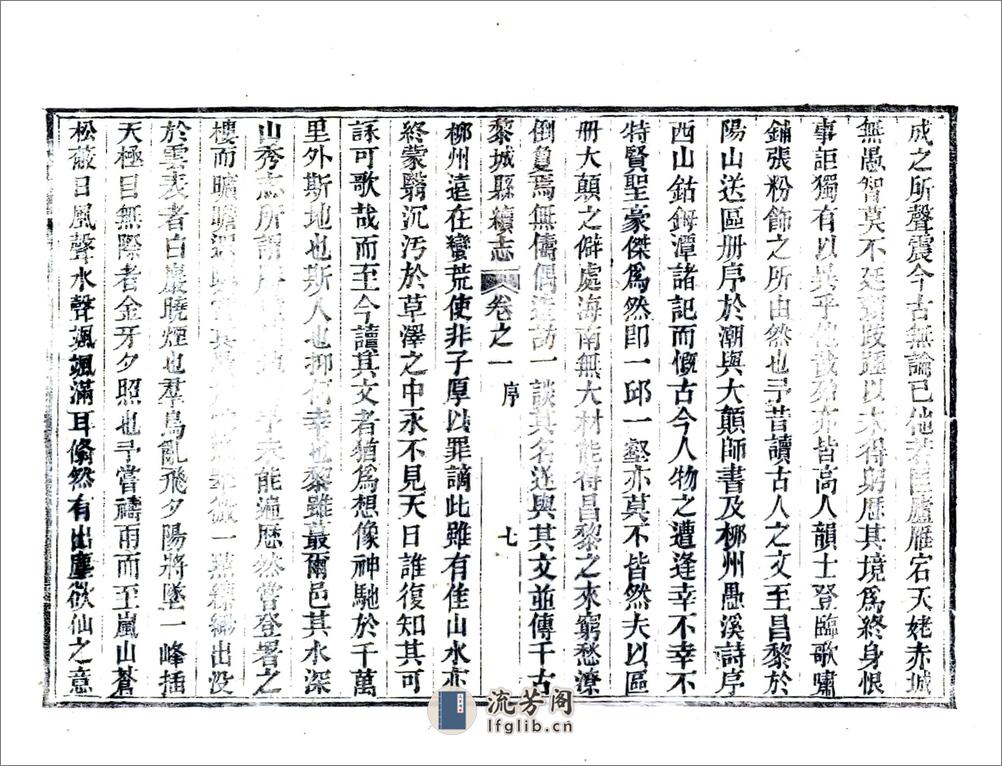 成之所聲震今古無論已他若匡廬雁宕天姥赤城
無愚智莫不延頸跂踵以不得窮歷其境爲終身恨
事詎獨有以異乎他哉殆亦皆高人韻士登臨歌嘯
鋪張粉飾之所由然也予昔讀古人之文至昌黎於
陽山送區册序於潮與大顛師書及柳州愚溪詩序
西山鈷鉧潭諸記而慨古今人物之遭逢幸不幸不
特賢聖豪傑爲然即一邱一壑亦莫不皆然夫以區
册大顛之僻處海南無大材能得昌黎之來窮愁潦
倒敻焉無儔偶造訪一談其名遂與其文並傳千古
黎城縣續志 卷之一 序 七
柳州遠在蠻荒使非子厚以罪謫此雖有佳山水亦
終蒙翳沉汚於草澤之中永不見天日誰復知其可
詠可歌哉而至今讀其文者猶爲想像神馳於千萬
里外斯地也斯人也抑何幸也黎雖蕞爾邑其水深
山秀志所謂 予未能遍歷然嘗登署之
樓而曠瞻 一 出没
於雲表者白巖曉煙也羣鳥亂飛夕陽將墜一峰插
天極目無際者金牙夕照也予嘗禱雨而至嵐山蒼
松蔽日風聲水聲颯颯滿耳翛然有出塵欲仙之意
流芳阁
lfglib.cn